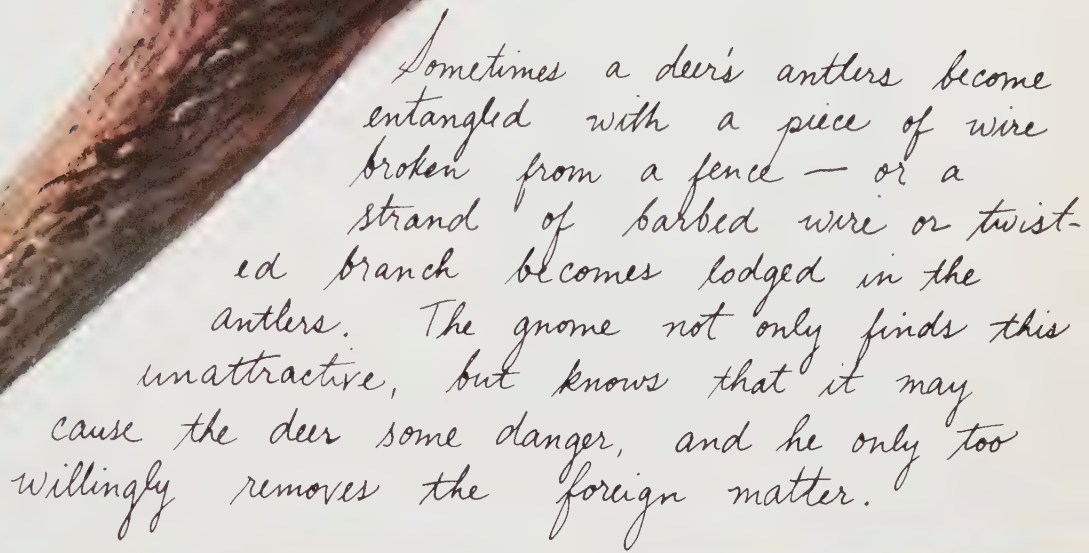 Sometimes a deer's antlers become
entangled with a piece of wire
broken from a fence — or a
strand of barbed wire or twist-
ed branch becomes lodged in the
antlers. The gnome not only finds this
unattractive, but knows that it may
cause the deer some danger, and he only too
willingly removes the foreign matter.